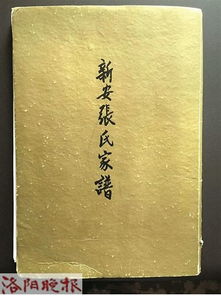 新安張氏家譜
洛阳晚报